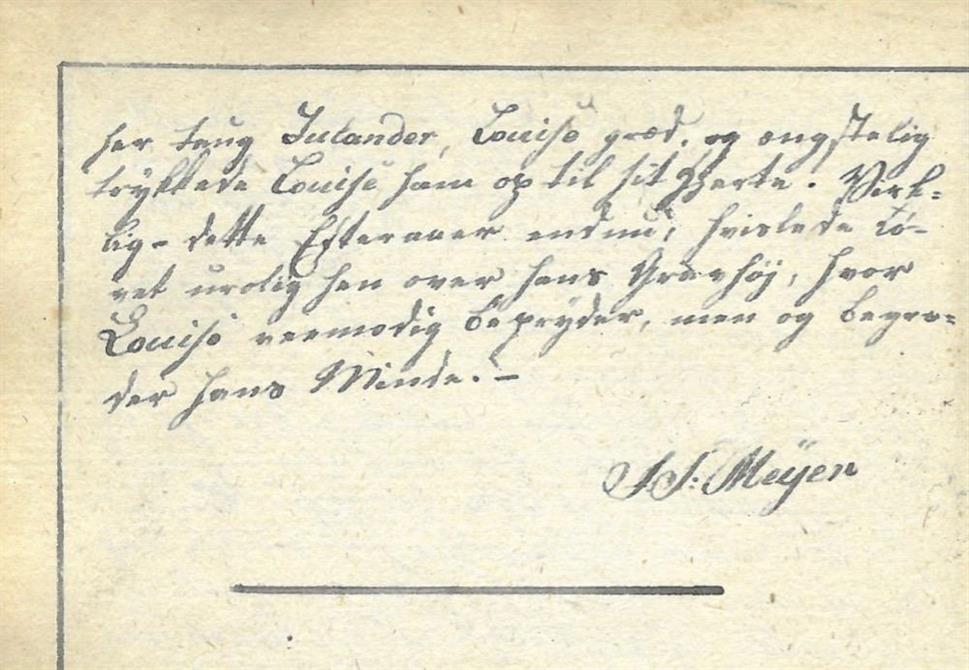 her taug Julander, Louise græd, og ængstelig
trykkede Louise ham op til sit Hjerte. Virk-
lig - dette Efteraaer endnu, hvislede Lø-
vet urolig hen over hans Gravhøj, hvor
Louise veemodig bepryder, men og begræ-
der hans Minde. -
J. S. Meÿer